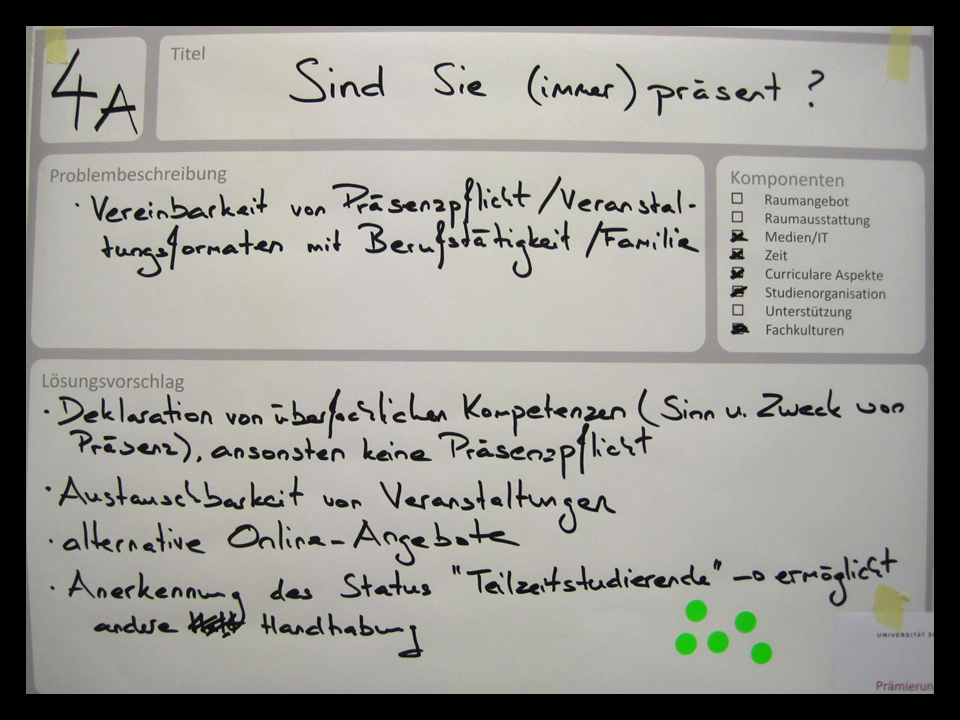 4A
Titel
Sind Sie (immer) präsent ?
Problembeschreibung
· Vereinbarkeit von Präsenzpflicht / Veranstal-
tungsformaten mit Berufstätigkeit / Familie
Komponenten
Raumangebot
Raumausstattung
Medien/IT
Zeit
Curriculare Aspekte
Studienorganisation
Unterstützung
Fachkulturen
Lösungsvorschlag
· Deklaration von überfachlichen Kompetenzen ( Sinn u. Zweck von
Präsenz), ansonsten keine Präsenzpflicht
· Austauschbarkeit von Veranstaltungen
· alternative Online-Angebote
· Anerkennung des Status "Teilzeitstudierende" → ermöglicht
andere Handhabung
UNIVERSITÄT
Prämierun